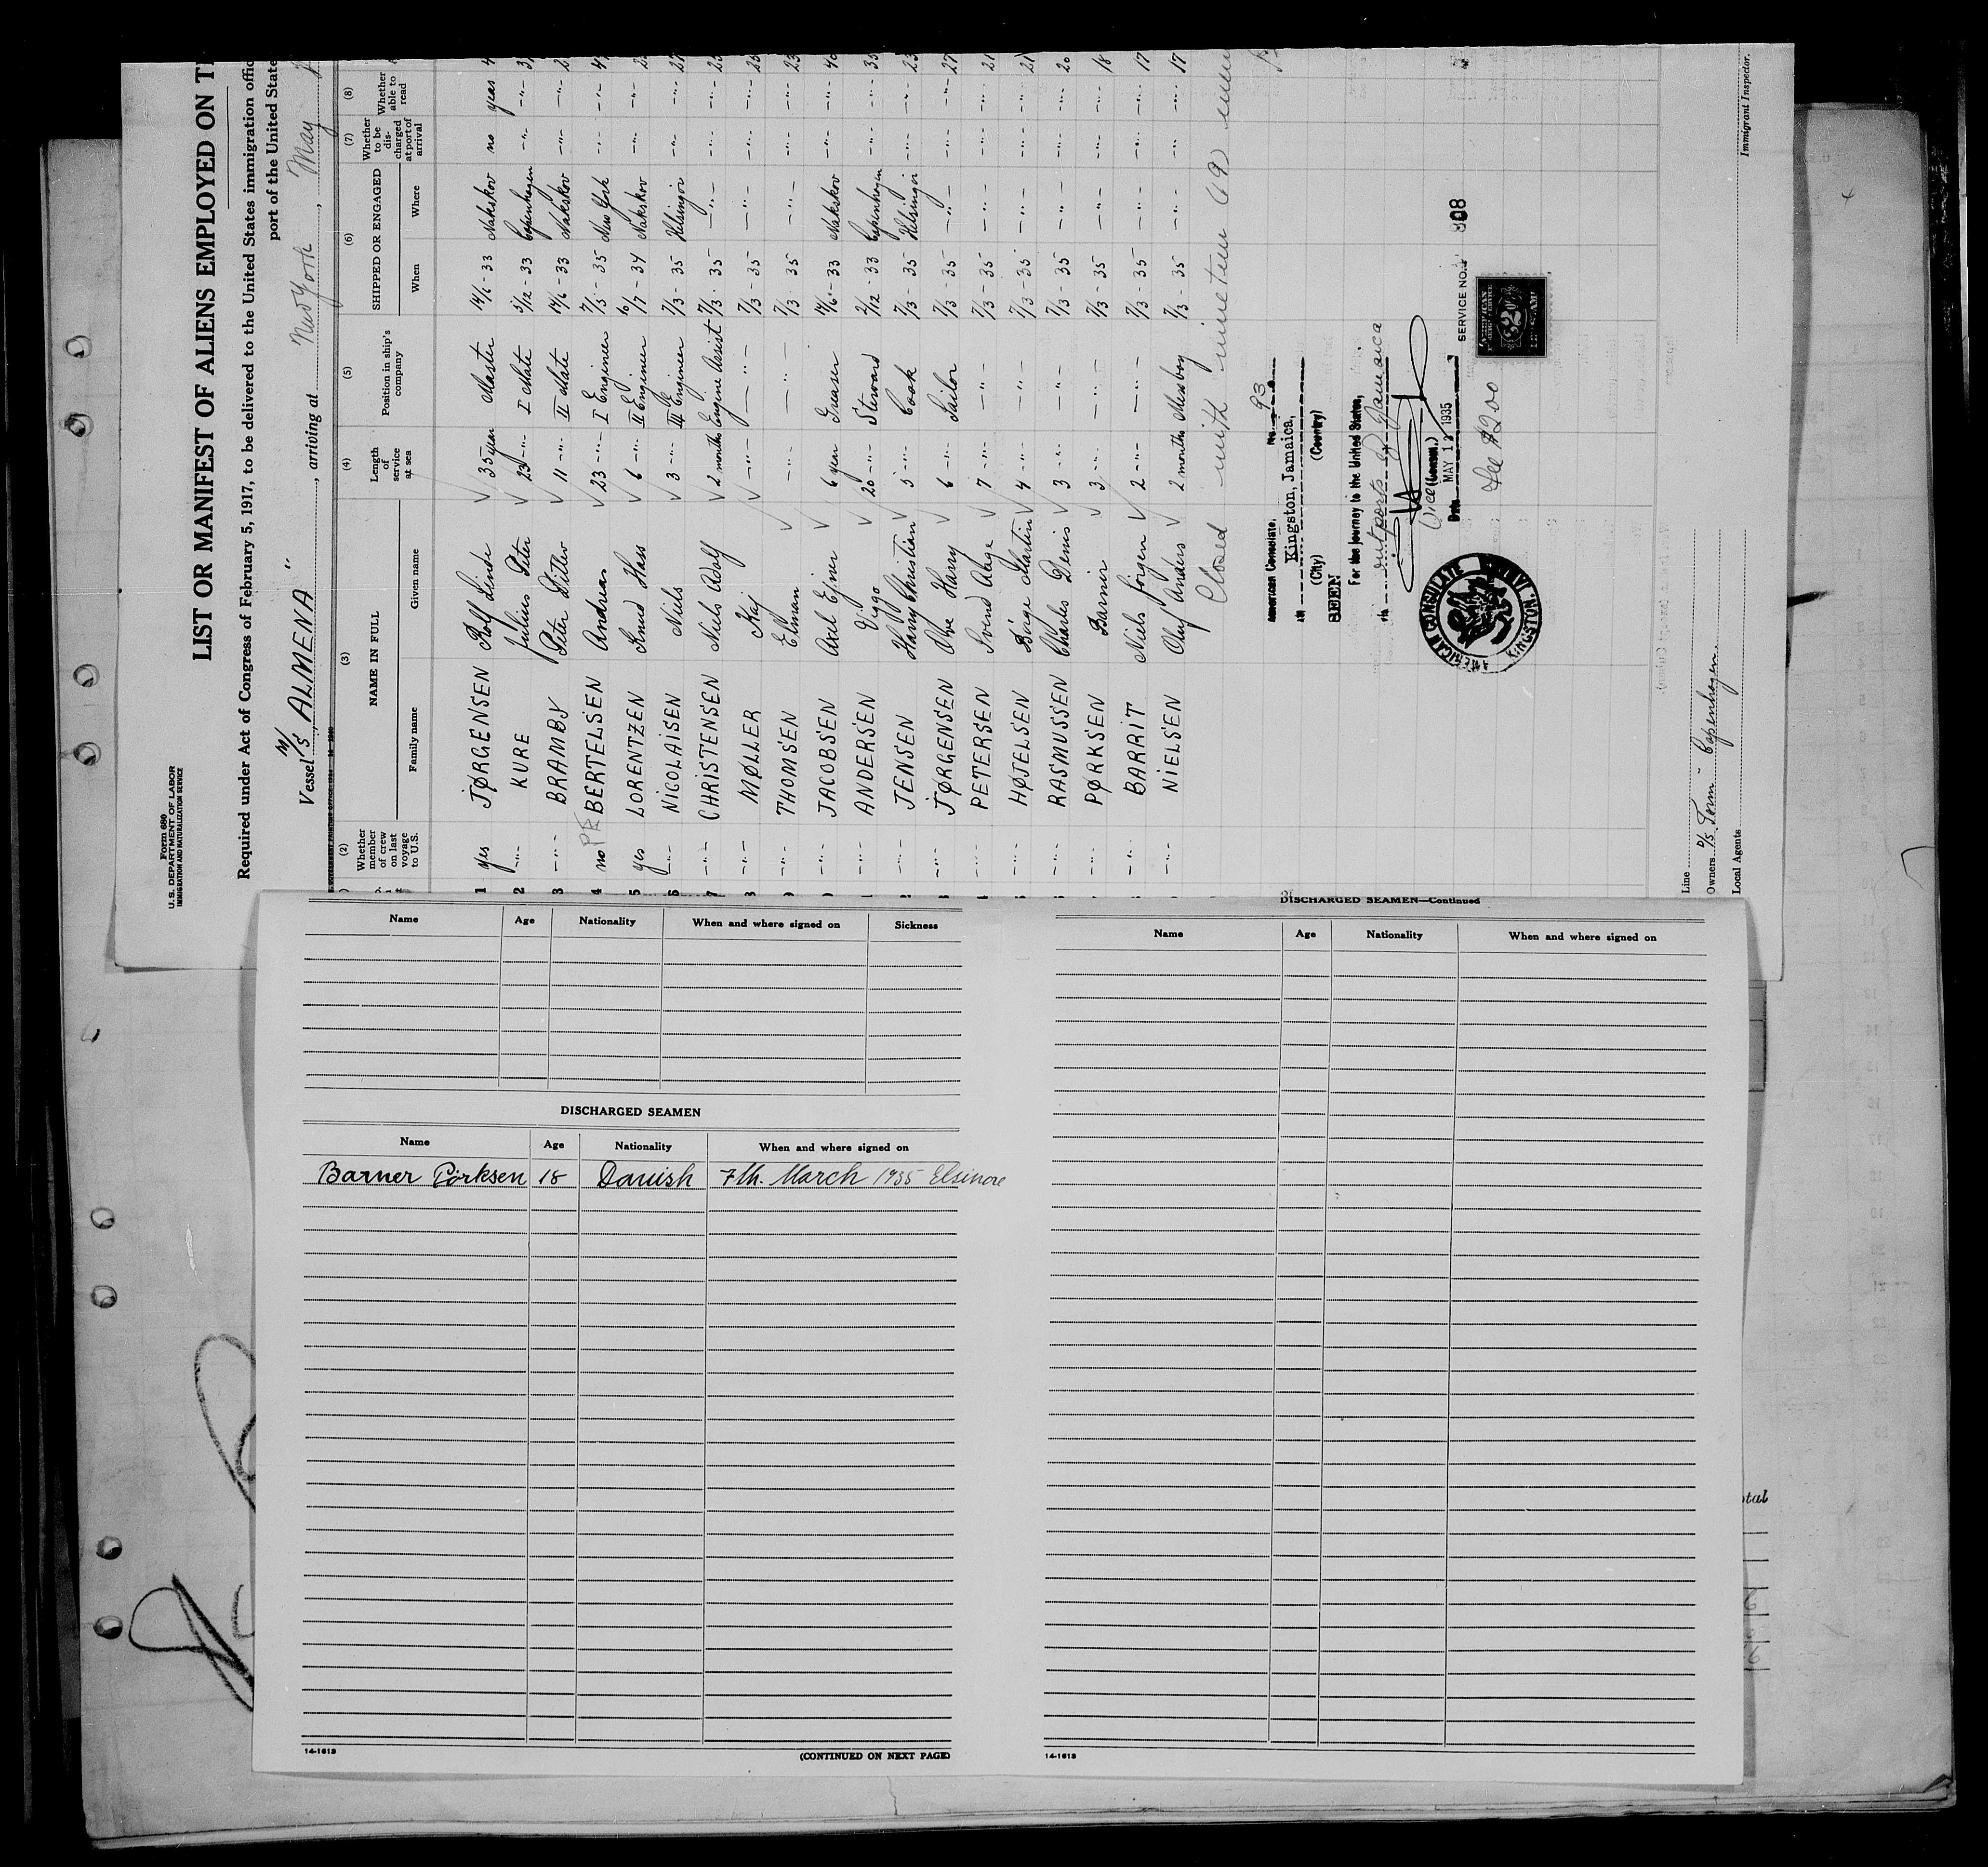 Form 680
U. S. DEPARTMENT OF LABOR
IMMIGRATION AND NATURALIZATION SERVICE
LIST OR MANIFEST OF ALIENS EMPLOYED ON
Required under Act of Congress of February 5, 1917, to be delivered to the United States immigration
port of the United
Vessel M/S "ALMENA", arriving at New York, May
(2) Whether member of crew on last voyage to U.S. (3) NAME IN FULL Family name Given name (4) Length of service at sea (5) Position in ship's company (6) SHIPPED OR ENGAGED When Where (7) Whether to be discharged at port of arrival (8) Whether able to read
1 yes JØRGENSEN Rolf Linde 35 year Master 14/6-33 Nakskov no yeas
2 -"- KURE Julius Peter 23 -"- I Mate 5/12-33 Copenhagen -"- -"-
3 -"- BRAMBY Peter Ditlev 11 -"- II Mate 14/6-33 Nakskov -"- -"-
4 no BERTELSEN Andreas 23 -"- I Engineer 7/5-35 New York -"- -"-
5 yes LORENTZEN Knud Hass 6 -"- II Engineer 6/7-34 Nakskov -"- -"-
6 -"- NICOLAISEN Niels 3 -"- III Engineer 7/3-35 Helsingör -"- -"-
7 -"- CHRISTENSEN Niels Adolf 2 months Engine Assist 7/3-35 -"- -"- -"-
8 -"- MØLLER Kaj -"- -"- 7/3-35 -"- -"- -"- 25
9 -"- THOMSEN Elman -"- -"- 7/3-35 -"- -"- -"- 23
0 -"- JACOBSEN Axel Ejner 6 year Greaser 14/6-33 Nakskov -"- -"-
1 -"- ANDERSEN Viggo 20 -"- Steward 2/12-33 Copenhagen -"- -"-
2 -"- JENSEN Harry Christian 5 -"- Cook 7/3-35 Helsingör -"- -"-
3 -"- JØRGENSEN Ove Harry 6 -"- Sailor 7/3-35 -"- -"- -"- 27
4 -"- PETERSEN Svend Aage 7 -"- -"- 7/3-35 -"- -"- -"- 21
5 -"- HØJELSEN Börge Martin 4 -"- -"- 7/3-35 -"- -"- -"- 21
6 -"- RASMUSSEN Charles Denis 3 -"- -"- 7/3-35 -"- -"- -"- 20
PØRKSEN Barner 3 -"- -"- 7/3-35 -"- -"- -"- 18
BARRIT Niels Jörgen 2 -"- -"- 7/3-35 -"- -"- -"- 17
NIELSEN Oluf Anders 2 months Messboy 7/3-35 -"- -"- -"- 17
Closed with nineteen (19)
American Consulate, No. 93
at Kingston, Jamaica,
(City) (Country)
SEEN
For the journey to the United States,
outports of Jamaica
Vice (Consul.)
Date MAY 1 1935
SERVICE NO. 808
Fee $2.00
AMERICAN CONSULATE KINGSTON, JAMAICA
AMERICAN
$2
Line
Owners D/S Torm - Copenhagen.
Local Agents
Immigrant Inspector.
Name Age Nationality When and where signed on Sickness
DISCHARGED SEAMEN
Name Age Nationality When and where signed on
Barner Pörksen 18 Danish 7th. March 1935 Elsinore
14-1613
(CONTINUED ON NEXT PAGE)
DISCHARGED SEAMEN—Continued
Name Age Nationality When and where signed on
14-1613